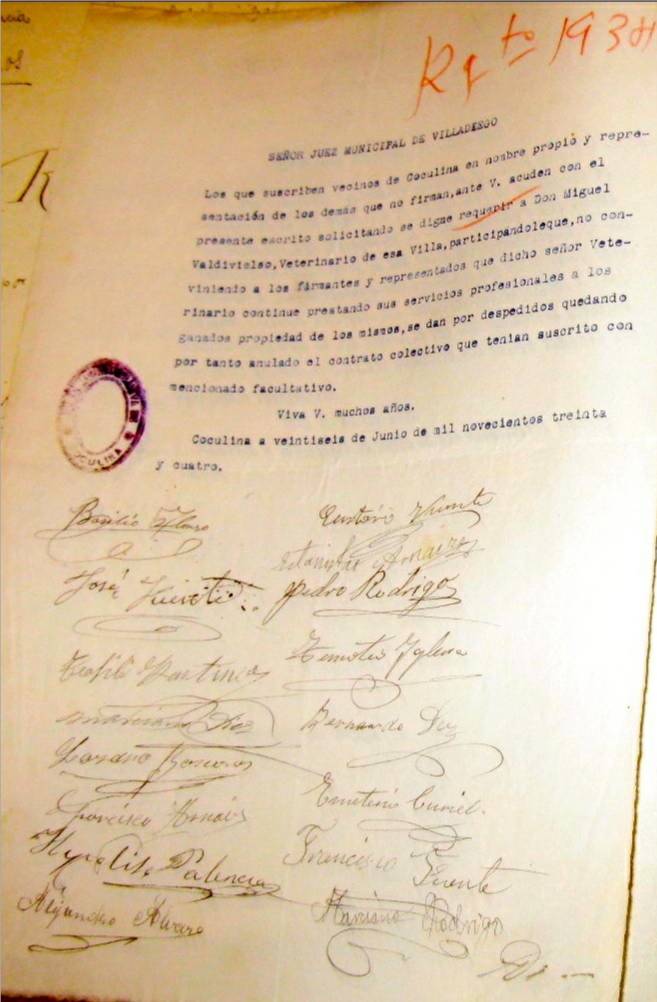 Rqto 1934
SEÑOR JUEZ MUNICIPAL DE VILLADIEGO
Los que suscriben vecinos de Coculina en nombre propio y repre-
sentación de los demás que no firman,ante V. acuden con el
presente escrito solicitando se digne requerir a Don Miguel
Valdivielso,Veterinario de esa Villa,participándoleque,no con-
viniendo a los firmantes y representados que dicho señor Vete-
rinario continue prestando sus servicios profesionales a los
ganados propiedad de los mismos,se dan por despedidos quedando
por tanto anulado el contrato colectivo que tenian suscrito con
mencionado facultativo.
Viva V. muchos años.
Coculina a veintiseis de Junio de mil novecientos treinta
y cuatro.
COCULINA
Basilio Gustavo
Estanislao Arnaiz
José Pedro Rodrigo
Teofilo Martinez Timoteo Yglesia
Marciano Diez Bernardo Diez
Emeterio Curiel.
Francisco Arnaiz
Francisco Fuente
Hypolito Palencia
Alejandro Alvaro Mariano Rodrigo